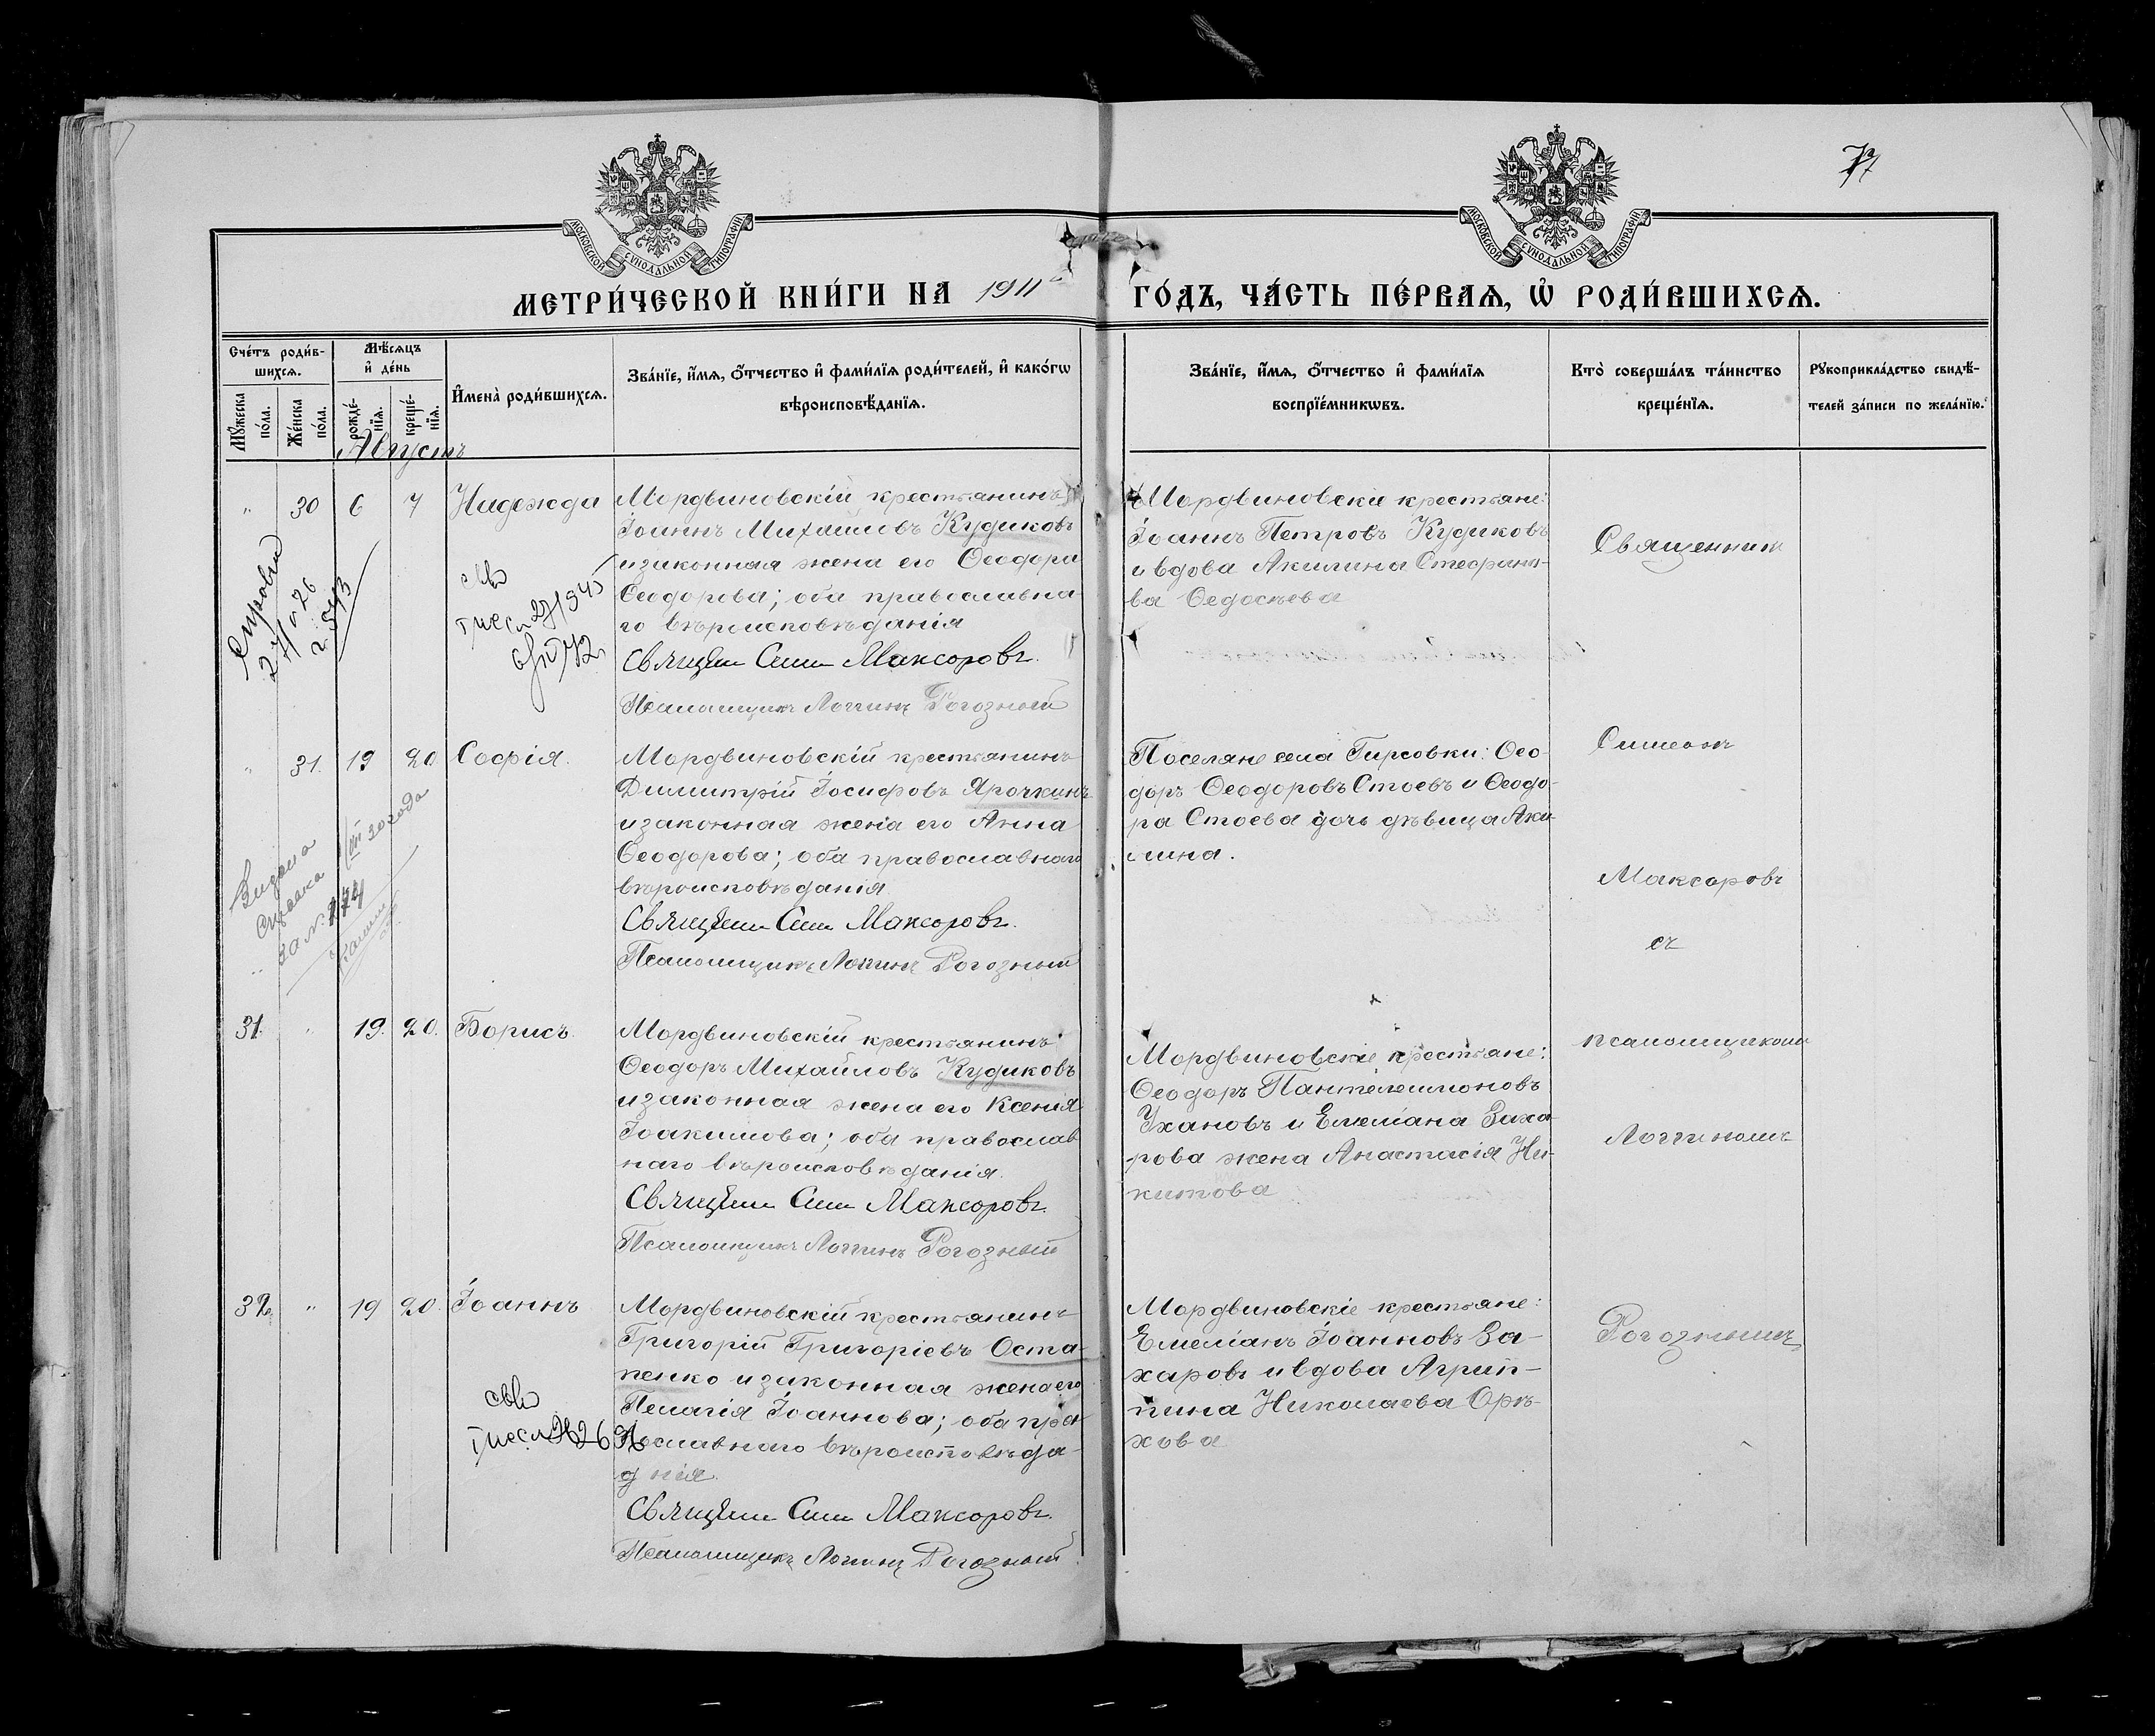 77
МОСКОВСКОЙ СѴНОДАЛЬНОЙ ТИПОГРАФІИ
МОСКОВСКОЙ СѴНОДАЛЬНОЙ ТИПОГРАФІИ
МЕТРИ́ЧЕСКОЙ КНИ́ГИ НА 1911 ГО́ДЪ, ЧА́СТЬ ПЕ́РВАѦ, Ѡ҆ РОДИ́ВШИХСѦ.
Сче́тъ роди́в-
шихсѧ.
Мꙋ́жеска
по́ла.
Же́нска
по́ла.
Мѣ́сѧцъ
и҆ де́нь
рожде́-
нїѧ.
креще́-
нїѧ.
И҆мена̀ роди́вшихсѧ.
Зва́нїе, и҆́мѧ, ѻ҆́тчество и҆ фами́лїѧ роди́телей, и҆ како́гѡ
вѣроисповѣ́данїѧ.
Зва́нїе, и҆́мѧ, ѻ҆́тчество и҆ фами́лїѧ
воспрїе́мникѡвъ.
Кто̀ соверша́лъ та́инство
креще́нїѧ.
Рꙋкоприкла́дство свидѣ́-
телей за́писи по жела́нїю.
Августъ
" 30 6 7 Надежда
Мордвиновскій крестьянинъ
Іоаннъ Михаиловъ Кудиковъ
и законная жена его Ѳеодора
Ѳеодорова; оба православна-
го вѣроисповѣданія
Священ Сим Максоровъ.
Псаломщикъ Логгинъ Рогозный
Мордвиновскіе крестьяне:
Іоаннъ Петровъ Кудиковъ
и вдова Акилина Стефано-
ва Ѳедосѣева
" 31. 19 20 Софія.
Мордвиновскій крестьянинъ
Димитрій Іосифовъ Ярочкинъ
и законная жена его Анна
Ѳеодорова; оба православнаго
вѣроисповѣданія.
Священ Сим Максоровъ.
Псаломщикъ Логгинъ Рогозный
Поселяне села Гирсовки: Ѳео-
доръ Ѳеодоровъ Стоевъ и Ѳеодо-
ра Стоева дочь дѣвица Аки-
лина.
Выдана
Справка
за №. 174
20 года
31. " 19. 20. Борисъ
Мордвиновскій крестьянинъ
Ѳеодоръ Михайловъ Кудиковъ
и законная жена его Ксенія
Іоакимова; оба православ
наго вѣроисповѣданія.
Священ Сим Максоровъ.
Псаломщикъ Логгинъ Рогозный
Мордвиновскіе крестьяне:
Ѳеодоръ Пантелеимоновъ
Ухановъ и Емеліана Заха-
рова жена Анастасія Ни-
китова
32. " 19 20. Іоаннъ
Мордвиновскій крестьянинъ
Григорій Григоріевъ Оста-
пенко и законная жена его
Пелагія Іоаннова; оба пра-
вославнаго вѣроисповѣда-
нія.
Священ Сим Максоровъ.
Псаломщикъ Логгинъ Рогозный
Мордвиновскіе крестьяне:
Емеліанъ Іоанновъ За-
харовъ и вдова Агрип-
пина Николаева Орѣ-
хова
Священник
Симеонъ
Максоровъ
съ
псаломщикомъ
Логгиномъ
Рогознымъ